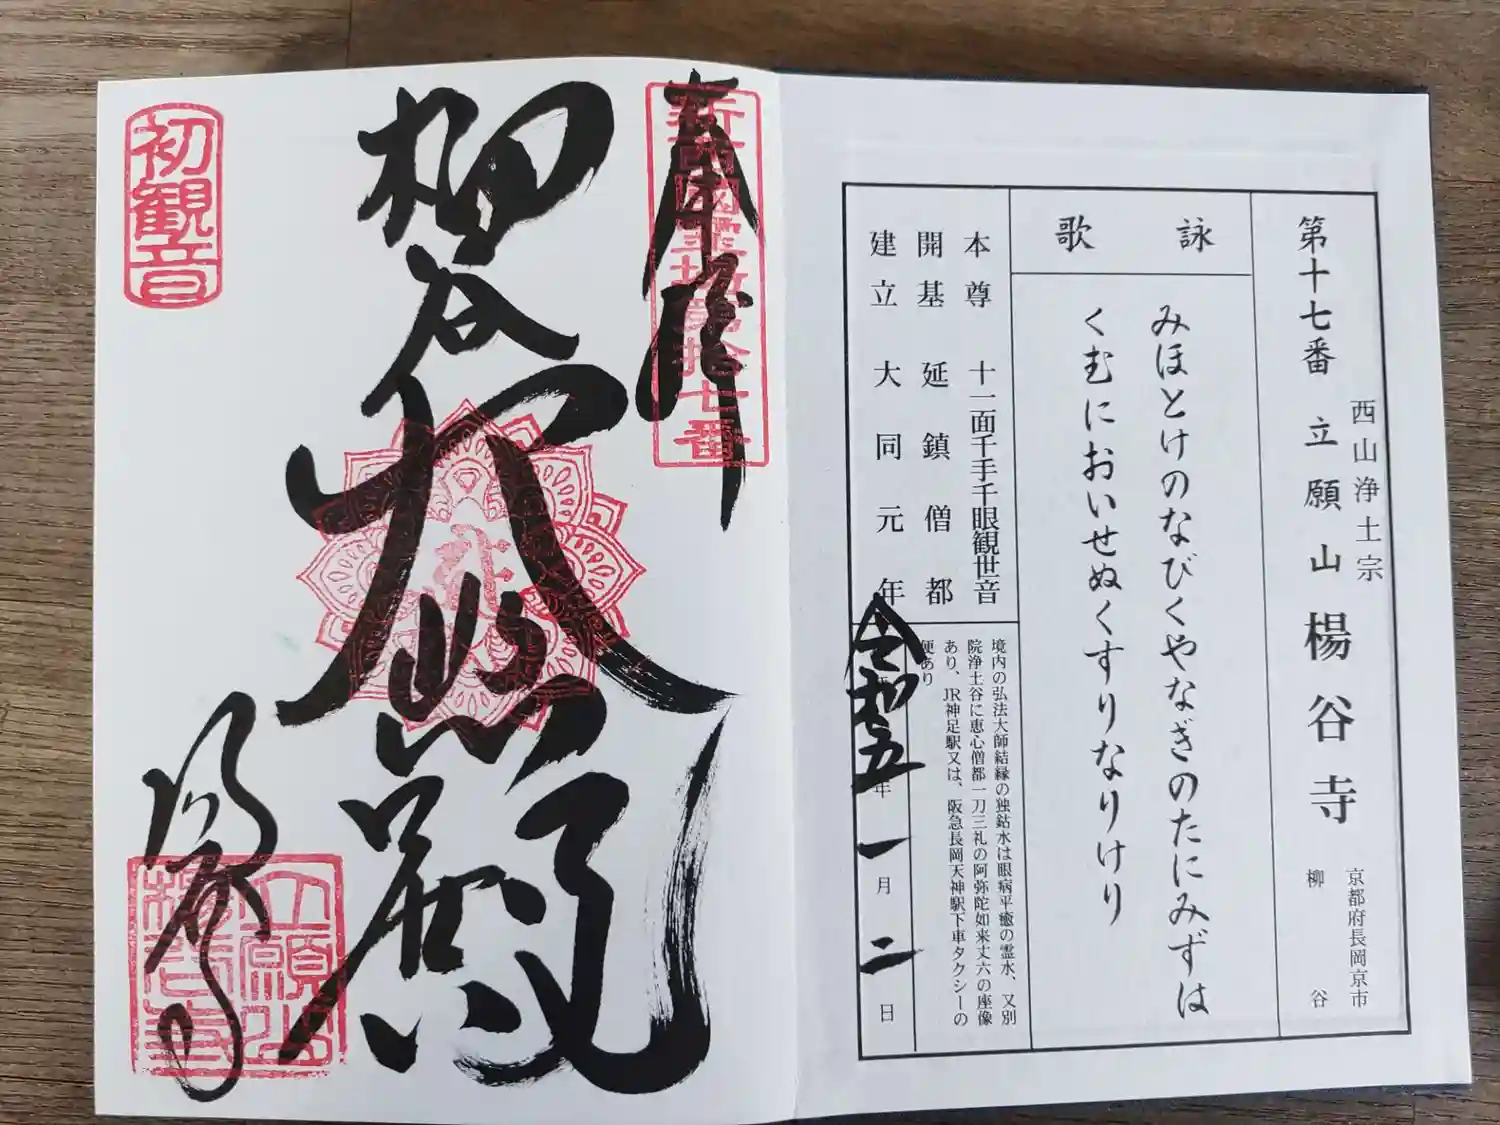 第十七番 立願山 楊谷寺
西山浄土宗
京都府長岡京市
柳谷
詠歌
みほとけのなびくやなぎのたにみずは
くむにおいせぬくすりなりけり
本尊 十一面千手千眼観世音
開基 延鎮僧都
建立 大同元年
境内の弘法大師結縁の独鈷水は眼病平癒の霊水、又別
院浄土谷に恵心僧都一刀三礼の阿弥陀如来丈六の座像
あり、JR神足駅又は、阪急長岡天神駅下車タクシーの
便あり
令和五年一月二日
奉拝
新西國霊場第拾七番
柳谷
大悲殿
楊谷寺
初観音
立願山
楊谷寺